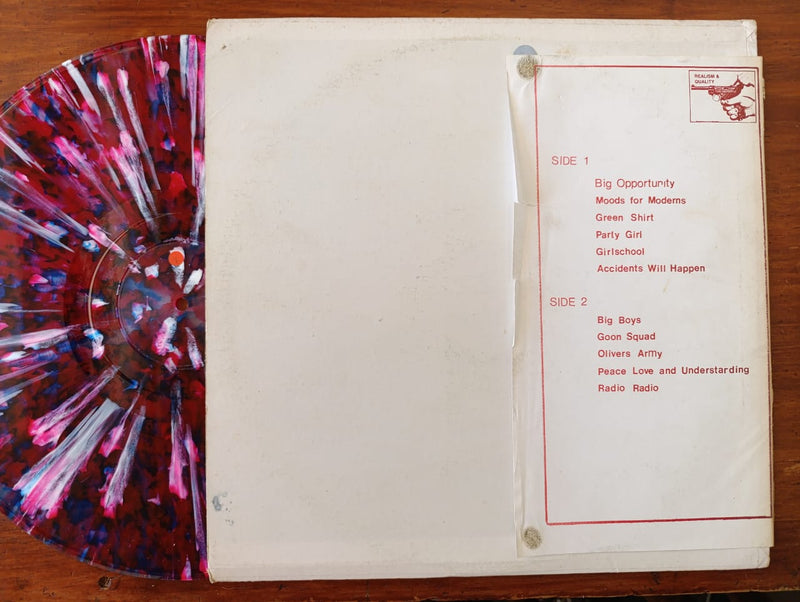 REALISM &
QUALITY
SIDE 1
Big Opportunity
Moods for Moderns
Green Shirt
Party Girl
Girlschool
Accidents Will Happen
SIDE 2
Big Boys
Goon Squad
Olivers Army
Peace Love and Understarding
Radio Radio